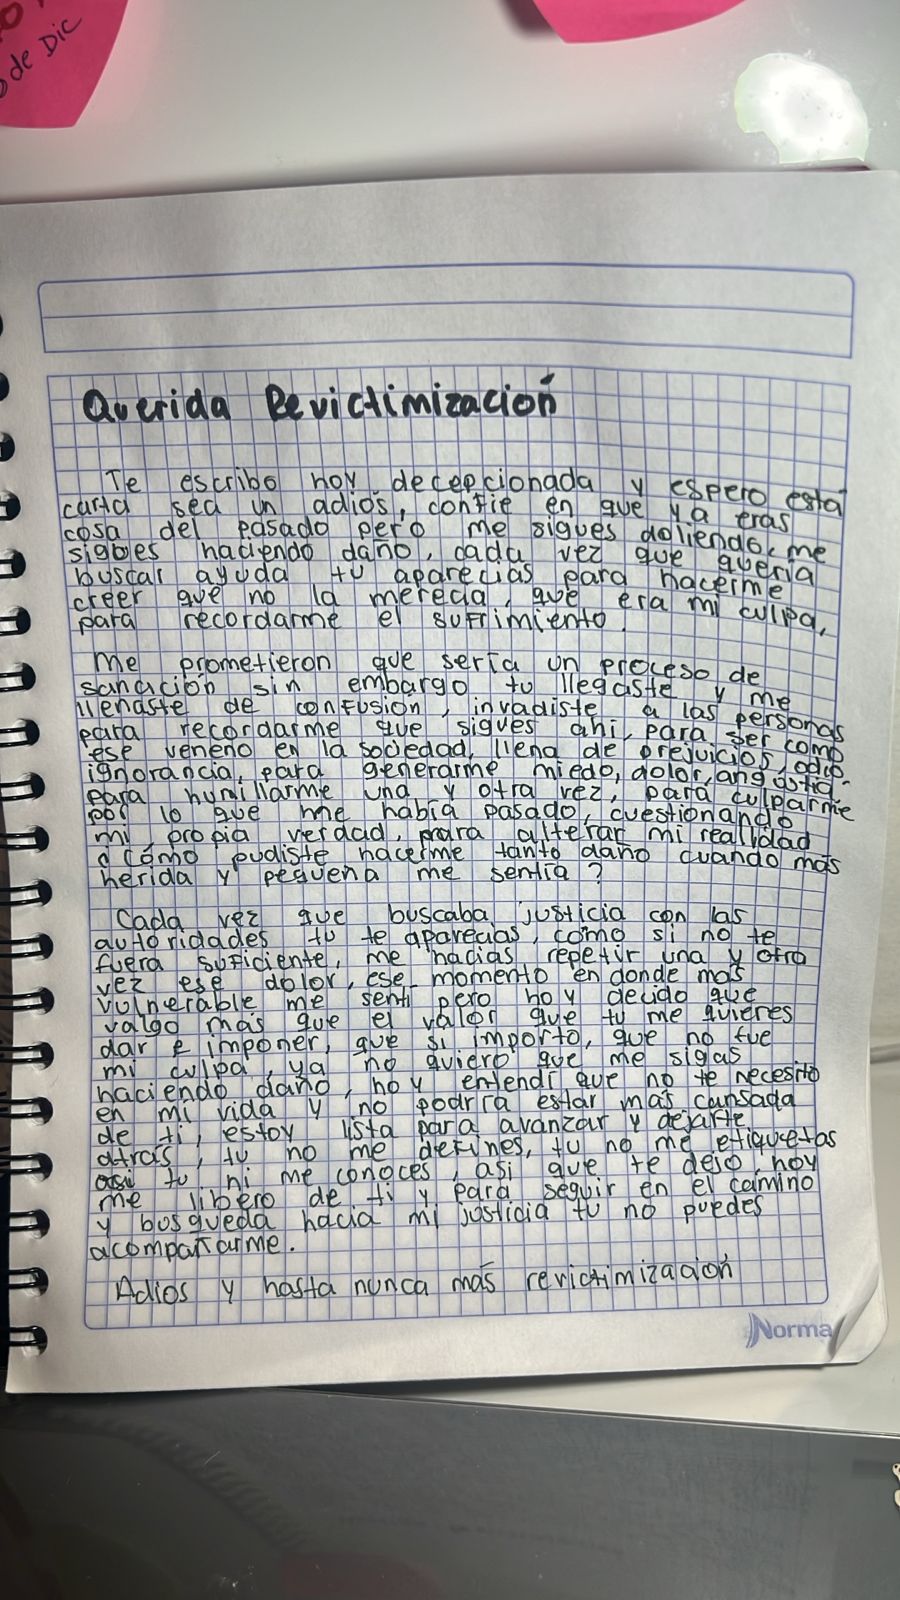 de Dic
Querida Revictimización
Te escribo hoy decepcionada y espero esta
carta sea un adiós, confie en que ya eras
cosa del pasado pero me sigues doliendo, me
sigues haciendo daño, cada vez que quería
buscar ayuda tu aparecías para hacerme
creer que no la merecía, que era mi culpa,
para recordarme el sufrimiento.
Me prometieron que sería un proceso de
sanación sin embargo tu llegaste y me
llenaste de confusión, invadiste a las personas
para recordarme que sigues ahí, para ser como
ese veneno en la sociedad, llena de prejuicios, odio,
ignorancia, para generarme miedo, dolor, angustia,
para humillarme una y otra vez, para culparme
por lo que me había pasado, cuestionando
mi propia verdad, para alterar mi realidad
¿cómo pudiste hacerme tanto daño cuando mas
herida y pequeña me sentía?
Cada vez que buscaba justicia con las
autoridades tu te aparecías, como si no te
fuera suficiente, me hacías repetir una y otra
vez ese dolor, ese momento en donde mas
vulnerable me sentí pero hoy decido que
valgo mas que el valor que tu me quieres
dar e imponer, que si importo, que no fue
mi culpa, ya no quiero que me sigas
haciendo daño, hoy entendí que no te necesito
en mi vida y no podría estar mas cansada
de ti, estoy lista para avanzar y dejarte
atrás, tu no me defines, tu no me etiquetas
asi tu ni me conoces, asi que te dejo, hoy
me libero de ti y para seguir en el camino
y busqueda hacia mi justicia tu no puedes
acompañarme.
Adios y hasta nunca más revictimización
Norma